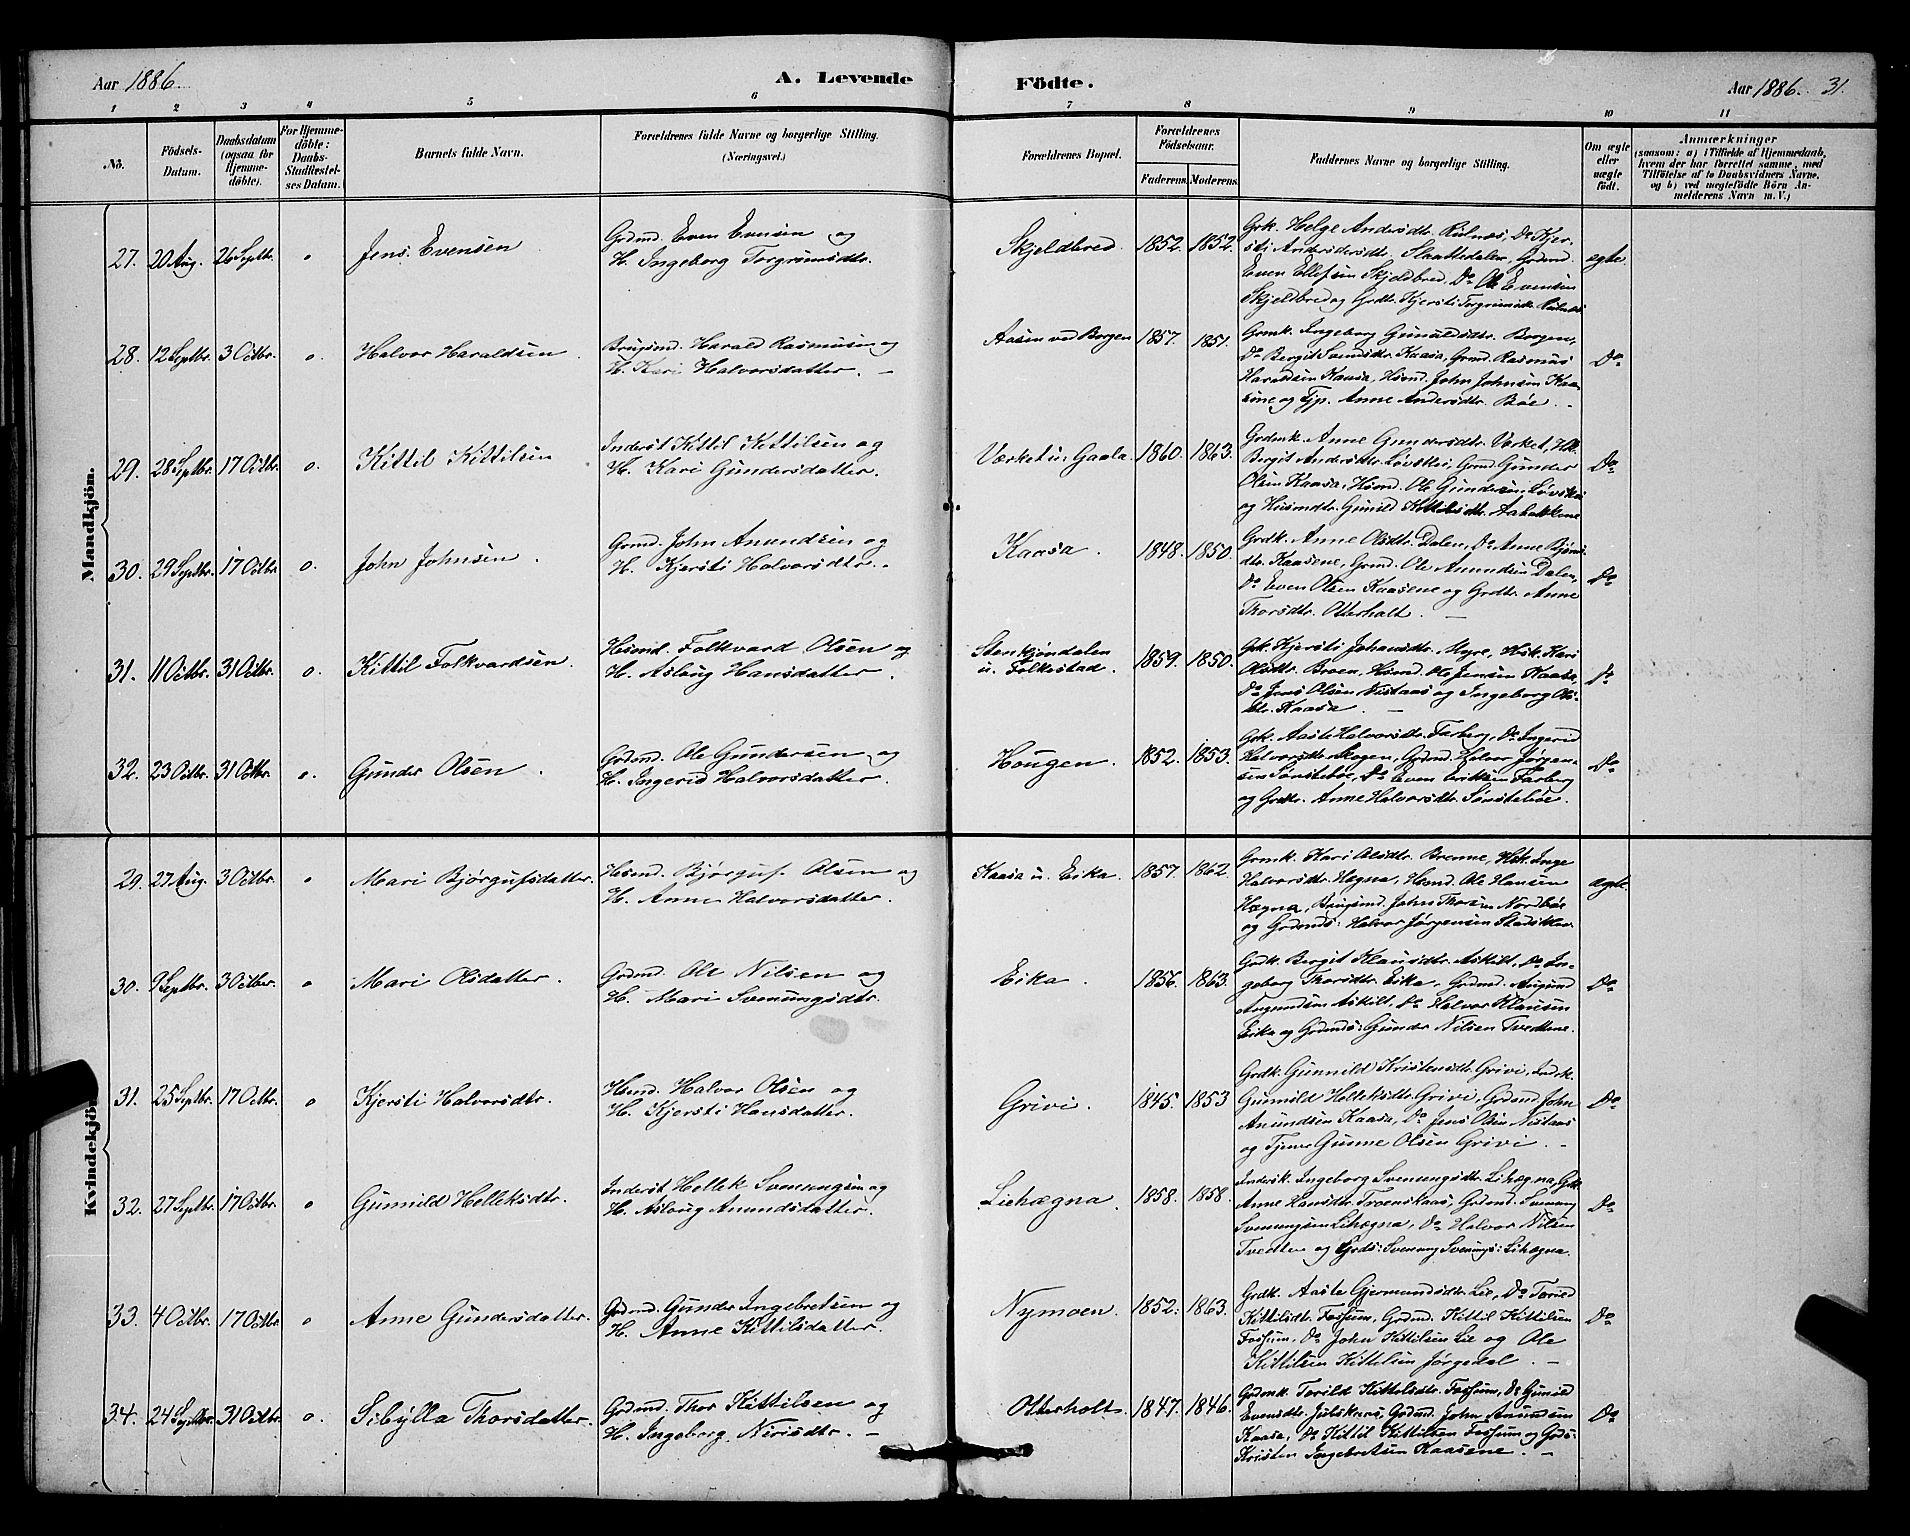 Aar 1886.
A. Levende
Födte.
Aar 1886. 31.
1 2 3 4 5 6 7 8 9 10 11
No.
Födsels-
Datum.
Daabsdatum
(ogsaa for
Hjemme-
döbte).
For Hjemme-
döbte:
Daabs-
Stadfæstel-
ses Datum.
Barnets fulde Navn.
Forældrenes fulde Navne og borgerlige Stilling.
(Næringsvei.)
Forældrenes Bopæl.
Forældrenes
Födselsaar.
Faderens. Moderens.
Faddernes Navne og borgerlige Stilling.
Om ægte
eller
uægte
födt.
Anmærkninger
(saasom: a) i Tilfælde af Hjemmedaab,
hvem der har forrettet samme, med
Tilföielse af to Daabsvidners Navne,
og b) ved uægtefödte Börn An-
melderens Navn m. V.)
Mandkjön.
27. 20 Aug. 26 Septbr. o Jens Evensen
Grdmd. Even Evensen og
H. Ingeborg Torgrimsdtr.
Skjeldbred. 1852. 1852.
Grk. Helge Andersdtr. Rulnæs, Do Kjer-
sti Andersdtr. Slaattedalen, Grdmd.
Even Ellefsen Skjeldbred, Do Ole Evensen
Skjeldbred og Grdtr. Kjersti Torgrimsdtr. Rulnæs
ægte.
28. 12 Septbr. 3 Octbr. o. Halvor Haraldsen.
Brugsmd. Harald Rasmusen og
H. Kari Halvorsdatter. —
Aasen ved Borgen 1857. 1851.
Grmk. Ingeborg Gunuldsdtr. Borgen,
Do Bergit Svendsdtr. Kaasa, Grmd. Rasmus
Haraldsen Kaasa, Hsmd. John Johnsen Kaa-
sene og Tjp. Anne Andersdtr. Böe. —
Do
29. 28 Septbr. 17 Octbr. o. Kittil Kittilsen
Inderst Kittil Kittilsen og
H. Kari Gundersdatter.
Værket u. Gaala. 1860. 1863.
Grdmk. Anne Gundersdtr. Værket, Hk.
Bergit Andersdtr. Løvstei, Grmd. Gunder
Olsen Kaasa, Hsmd. Ole Gundersen Løvstei
og Husmdtr. Gunild Kittilsdtr. Aabakkene
Do
30. 29 Septbr. 17 Octbr. o. John Johnsen.
Grmd. John Anundsen og
H. Kjersti Halvorsdtr.
Kaasa. 1848. 1850.
Grdk. Anne Olsdtr. Dalen, Do Anne Bjørns-
dtr. Kaasene, Grmd. Ole Anundsen Dalen,
Do Even Olsen Kaasene og Grdtr. Anne
Thorsdtr. Otterholt. —
Do
31. 11 Octbr. 31 Octbr. o. Kittil Folkvardsen.
Hsmd. Folkvard Olsen og
H. Aslaug Hansdatter.
Stenkjøndalen
u. Folkestad. 1859. 1850.
Grk. Kjersti Johansdtr. Myre, Hsk. Kari
Olsdtr. Broen, Hsmd. Ole Jensen Kaasa,
Do Jens Olsen Nistaas og Ingeborg Ols-
dtr. Kaasa. —
Do
32. 23 Octbr. 31 Octbr. o. Gunder Olsen.
Grdmd. Ole Gundersen og
H. Ingerid Halvorsdatter.
Hougen. 1852. 1853.
Grk. Aaste Halvorsdtr. Farberg, Do Ingerid
Halvorsdtr. Skogen, Grdmd. Halvor Jørgen-
sen Sønstebøe, Do Even Eriksen Farberg
og Grdtr. Anne Halvorsdtr. Sønstebøe.
Do
Kvindekjön.
29. 27 Aug. 3 Octbr. o Mari Bjørgufsdatter.
Hsmd. Bjørguf Olsen og
H. Anne Halvorsdatter.
Kaasa u. Eika. 1857. 1862.
Grmk. Kari Olsdtr. Brenne, Hsk. Inge
Halvorsdtr. Hægna, Hsmd. Ole Hansen
Hægna, Brugsmd. John Thorsen Nordbøe
og Grdmds: Halvor Jørgensen Stadskleiv.
ægte.
30. 9 Septbr. 3 Octber. o Mari Olsdatter.
Grdmd. Ole Nilsen og
H. Mari Svenungsdtr.
Eika. 1856. 1863.
Grdk. Bergit Klausdtr. Askilt, Do In-
geborg Thorsdtr. Eika, Grdmd. Augund
Augundsen Askilt, Do Halvor Klausen
Eika og Grdmds: Gunder Nilsen Tvedtene.
Do
31. 25 Septbr. 17 Octbr. o Kjersti Halvorsdtr.
Hsmd. Halvor Olsen og
H. Kjersti Hansdatter.
Grivi. 1845. 1853
Grdk. Gunnild Kristensdtr. Grivi, Indk.
Gunnild Helleksdtr. Grivi, Grdmd. John
Anundsen Kaasa, Do Jens Olsen Nistaas
og Tjener Gunne Olsen Grivi. —
Do
32. 27 Septbr. 17 Octbr. o Gunnild Helleksdtr.
Inderst Hellek Svenungsen og
H. Aslaug Anundsdatter.
Liehægna. 1858. 1858.
Indersk. Ingeborg Svenungsdtr. Lihægna, Grk.
Anne Hansdtr. Tronskaas, Grdmd. Svenung
Svenungsen Lihægna, Do Halvor Nilsen
Tvedten og Grds: Svenung Svenungs: Lihægna.
Do
33. 4 Octbr. 17 Octbr. o Anne Gundersdatter.
Grdmd. Gunder Ingebretsen og
H. Anne Kittilsdatter.
Nymoen. 1852. 1863.
Grdk. Aaste Gjermundsdtr. Lie, Do Torild
Kittilsdtr. Fossum, Grdmd. Kittil Kittilsen
Fossum, Do John Kittilsen Lie og Ole
Kittilsen Kittilsen Jørgedal. —
Do
34. 24 Septbr. 31 Octbr. o. Sibylla Thorsdatter.
Grdmd. Thor Kittilsen og
H. Ingeborg Nirisdtr. —
Otterholt. 1847. 1846.
Grdmk. Torild Kittilsdtr. Fossum, Do Gunild
Evensdtr. Julskaas, Grdmd. John Anundsen
Kaasa, Do Kittil Kittilsen Fossum og Grds:
Kristen Ingebretsen Kaasene. —
Do